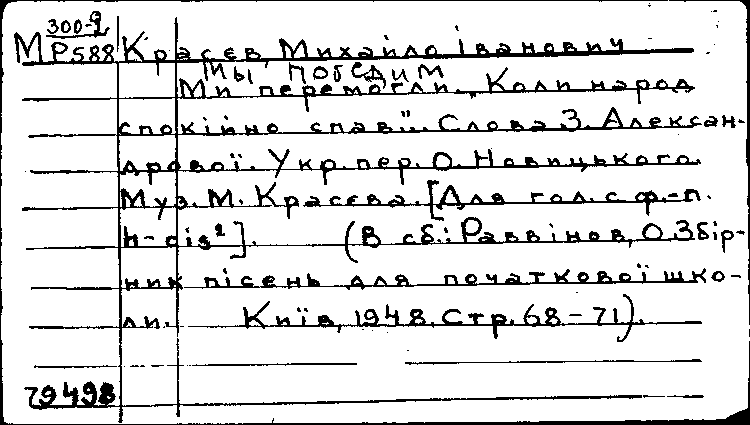 300-9
М Р588 Красєв, Михайло Іванович
Мы победим
Ми перемогли. „Коли народ
спокійно спав“... Слова З. Алексан-
дрової. Укр. пер. О. Новицького.
Муз. М. Красєва. [Для гол. с ф.-п.
h-cis²]. (В сб.: Раввінов, О. Збір-
ник пісень для початкової шко-
ли. Київ, 1948. Стр. 68-71).
79498